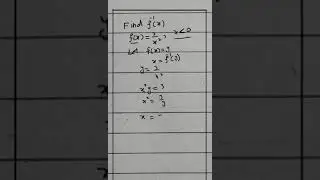 Find f⁻¹(x)
f(x) = 2/x², x<0
let f(x) = y
x = f⁻¹(y)
y = 2/x²
x²y = 2
x² = 2/y
x = -